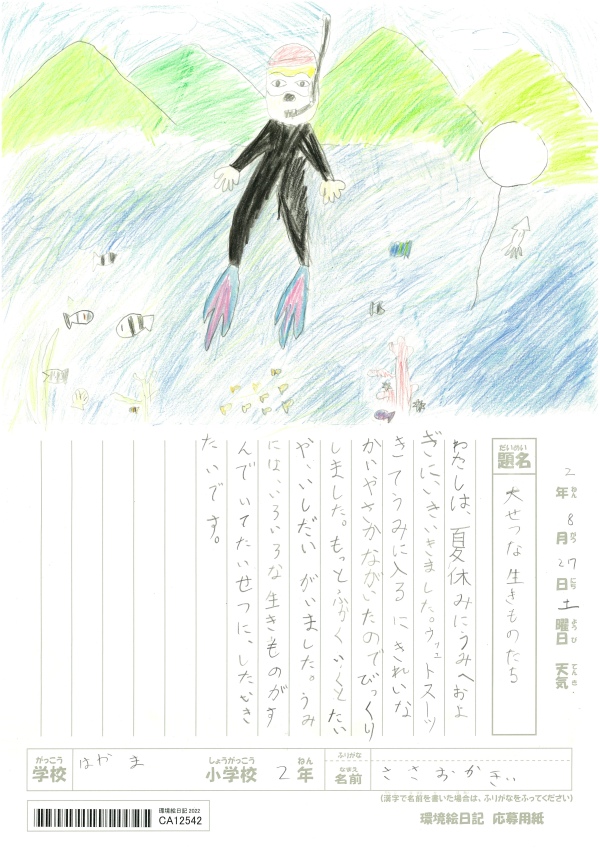 2年ねん8月がつ27日にち土曜日ようび 天気てんき
だいめい
題名 大せつな生きものたち
わたしは、夏休みにうみへおよ
ぎに、いきいきました。ウェットスーツ
きてうみに入るに きれいな
かいやさかながいたのでびっくり
しました。もっとふかくいくとたい
や、いしだい がいました。うみ
には、いろいろな生きものがす
んでいてたいせつに、
たいです。
がっこう しょうがっこう ねん ふりがな
学校 はやま 小学校 2年 なまえ 名前 ささおか
(漢字で名前を書いた場合は、ふりがなをふってください)
環境絵日記 2022
CA12542
環境絵日記 応募用紙